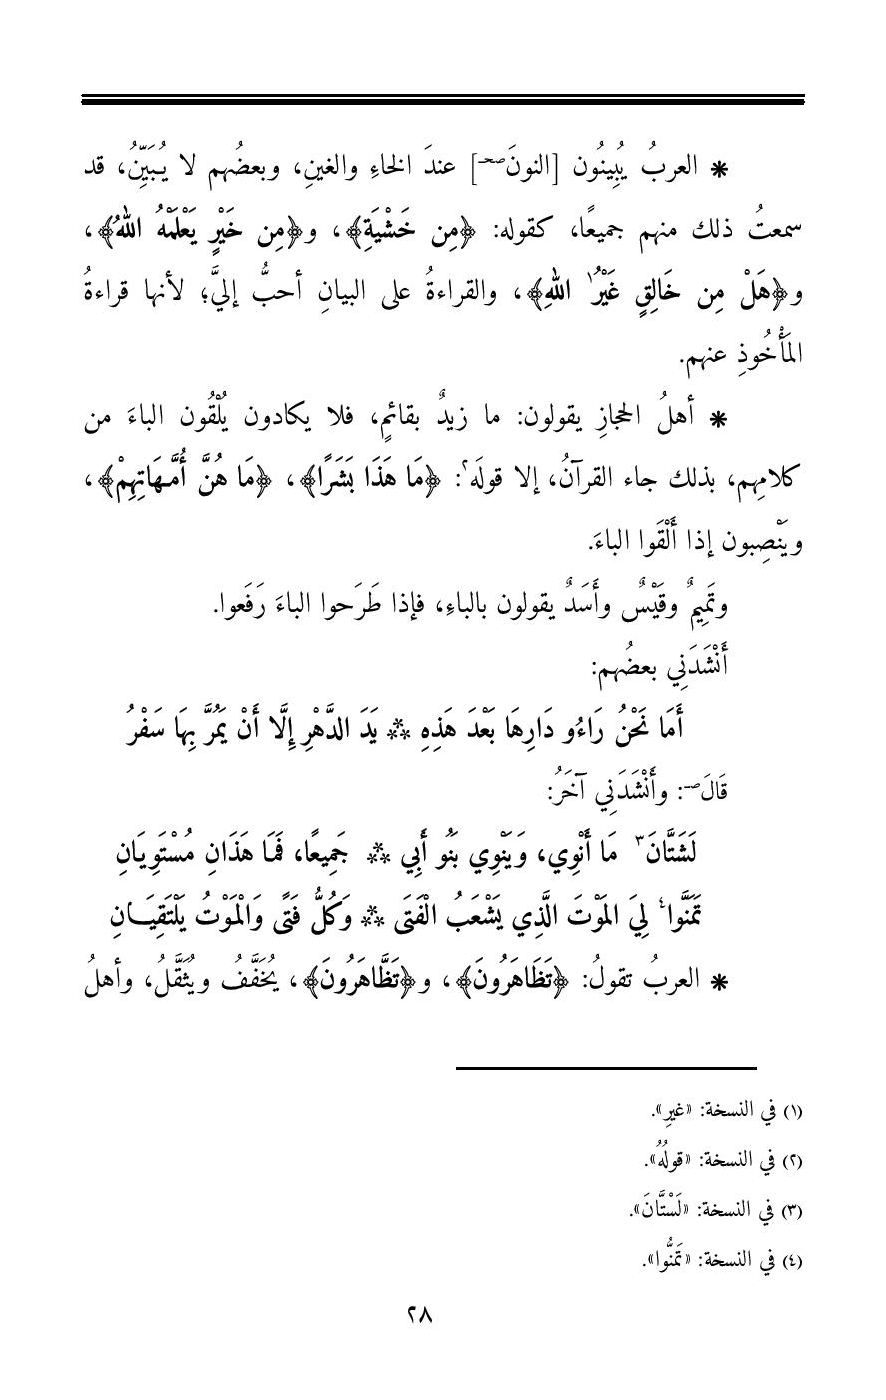 * العربُ يُبِينُون [النونَصحـ] عندَ الخاءِ والغينِ، وبعضُهم لا يُبَيِّنُ، قد
سمعتُ ذلك منهم جميعًا، كقوله: ﴿مِن خَشْيَةِ﴾، و﴿مِن خَيْرٍ يَعْلَمْهُ اللهُ﴾،
و﴿هَلْ مِن خَالِقٍ غَيْرُ١ اللهِ﴾، والقراءةُ على البيانِ أحبُّ إليَّ؛ لأنها قراءةُ
المَأْخُوذِ عنهم.
* أهلُ الحجازِ يقولون: ما زيدٌ بقائمٍ، فلا يكادون يُلْقُون الباءَ من
كلامِهم، بذلك جاء القرآنُ، إلا قولَه٢: ﴿مَا هَذَا بَشَرًا﴾، ﴿مَا هُنَّ أُمَّهَاتِهِمْ﴾،
ويَنْصِبون إذا أَلْقَوا الباءَ.
وتَمِيمٌ وقَيْسٌ وأَسَدٌ يقولون بالباءِ، فإذا طَرَحوا الباءَ رَفَعوا.
أَنْشَدَنِي بعضُهم:
أَمَا نَحْنُ رَاءُو دَارِهَا بَعْدَ هَذِهِ ** يَدَ الدَّهْرِ إِلَّا أَنْ يَمُرَّ بِهَا سَفْرُ
قَالَصـ: وأَنْشَدَنِي آخَرُ:
لَشَتَّانَ٣ مَا أَنْوِي، وَيَنْوِي بَنُو أَبِي ** جَمِيعًا، فَمَا هَذَانِ مُسْتَوِيَانِ
تَمَنَّوا٤ لِيَ المَوْتَ الَّذِي يَشْعَبُ الْفَتَى ** وَكُلُّ فَتًى وَالْمَوْتُ يَلْتَقِيَــانِ
* العربُ تقولُ: ﴿تَظَاهَرُونَ﴾، و﴿تَظَّاهَرُونَ﴾، يُخَفَّفُ ويُثَقَّلُ، وأهلُ
(١) في النسخة: «غيرِ».
(٢) في النسخة: «قولُهُ».
(٣) في النسخة: «لَسْتَّانَ».
(٤) في النسخة: «تَمَنُّوا».
٢٨